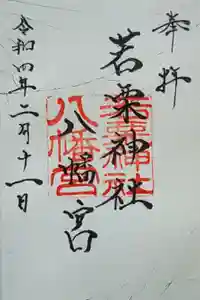 奉拝
若栗神社
八幡宮
若栗神社
八幡宮
令和四年二月十一日